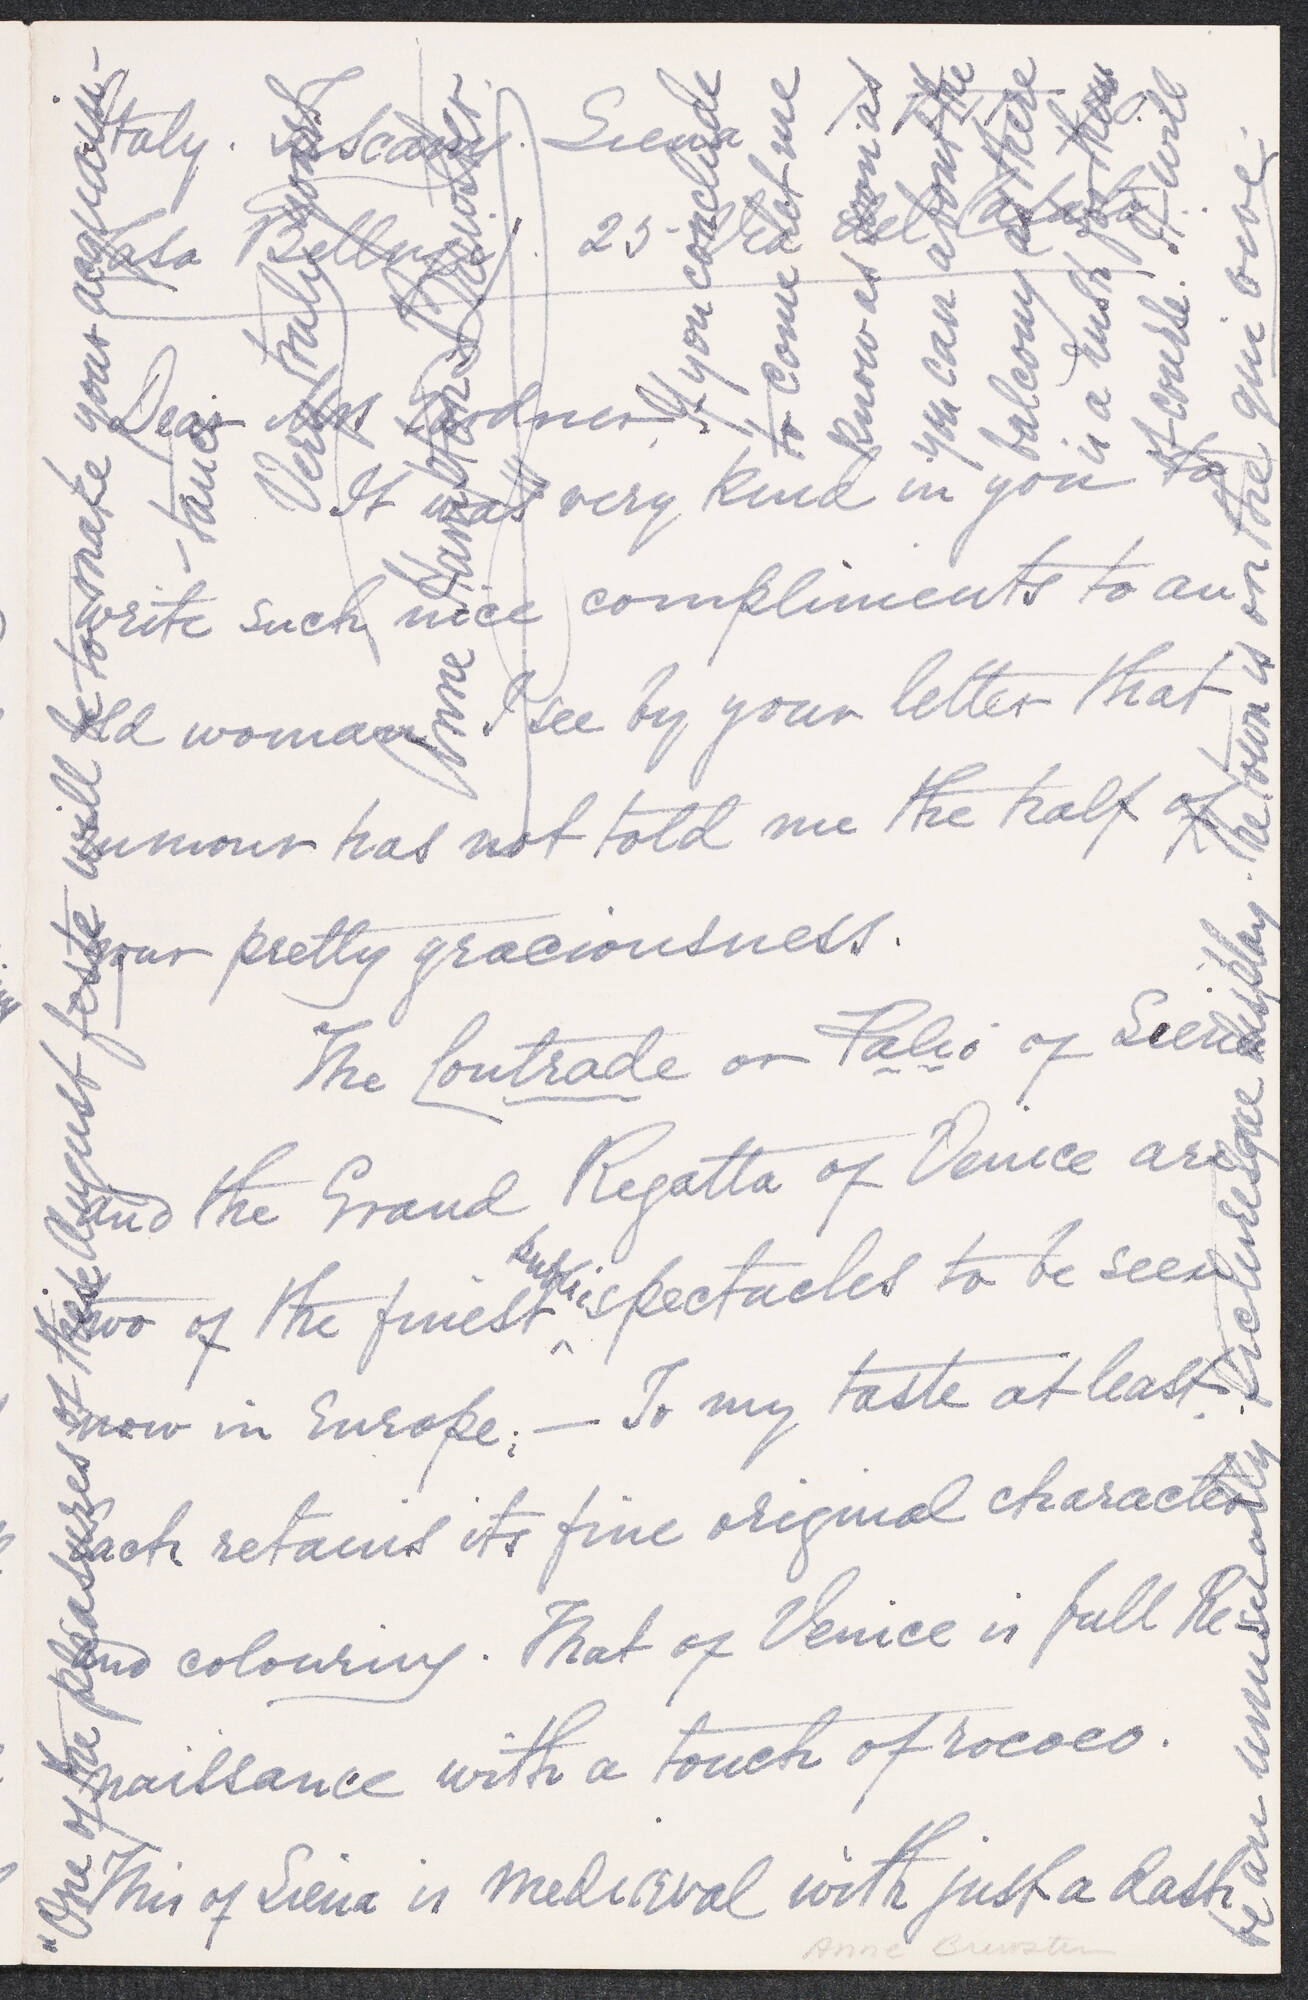 Italy. Toscany. Siena
Casa Bellugi. 25- Via del Casato.
Dear Mrs Gardner,
It was very kind in you to
write such nice compliments to an
old woman. I see by your letter that
rumour has not told me the half of
your pretty graciousness.
The Contrade or Palio of Siena
and the Grand Regatta of Venice are
two of the finest public spectacles to be seen
now in Europe; — To my taste at least.
Each retains its fine original character
and colouring. That of Venice is full Re-
naissance with a touch of rococo.
This of Siena is Mediæval with just a dash
If you conclude
to come let me
know as soon as
you can about the
balcony as there
is a rush for them
of course. It will
be an unusually picturesque display. The town is on the qui vive.
"One of the pleasures of these August feste will be to make your acquain-
-tance
Very truly yours
Anne Hampton Brewster.
Anne Brewster